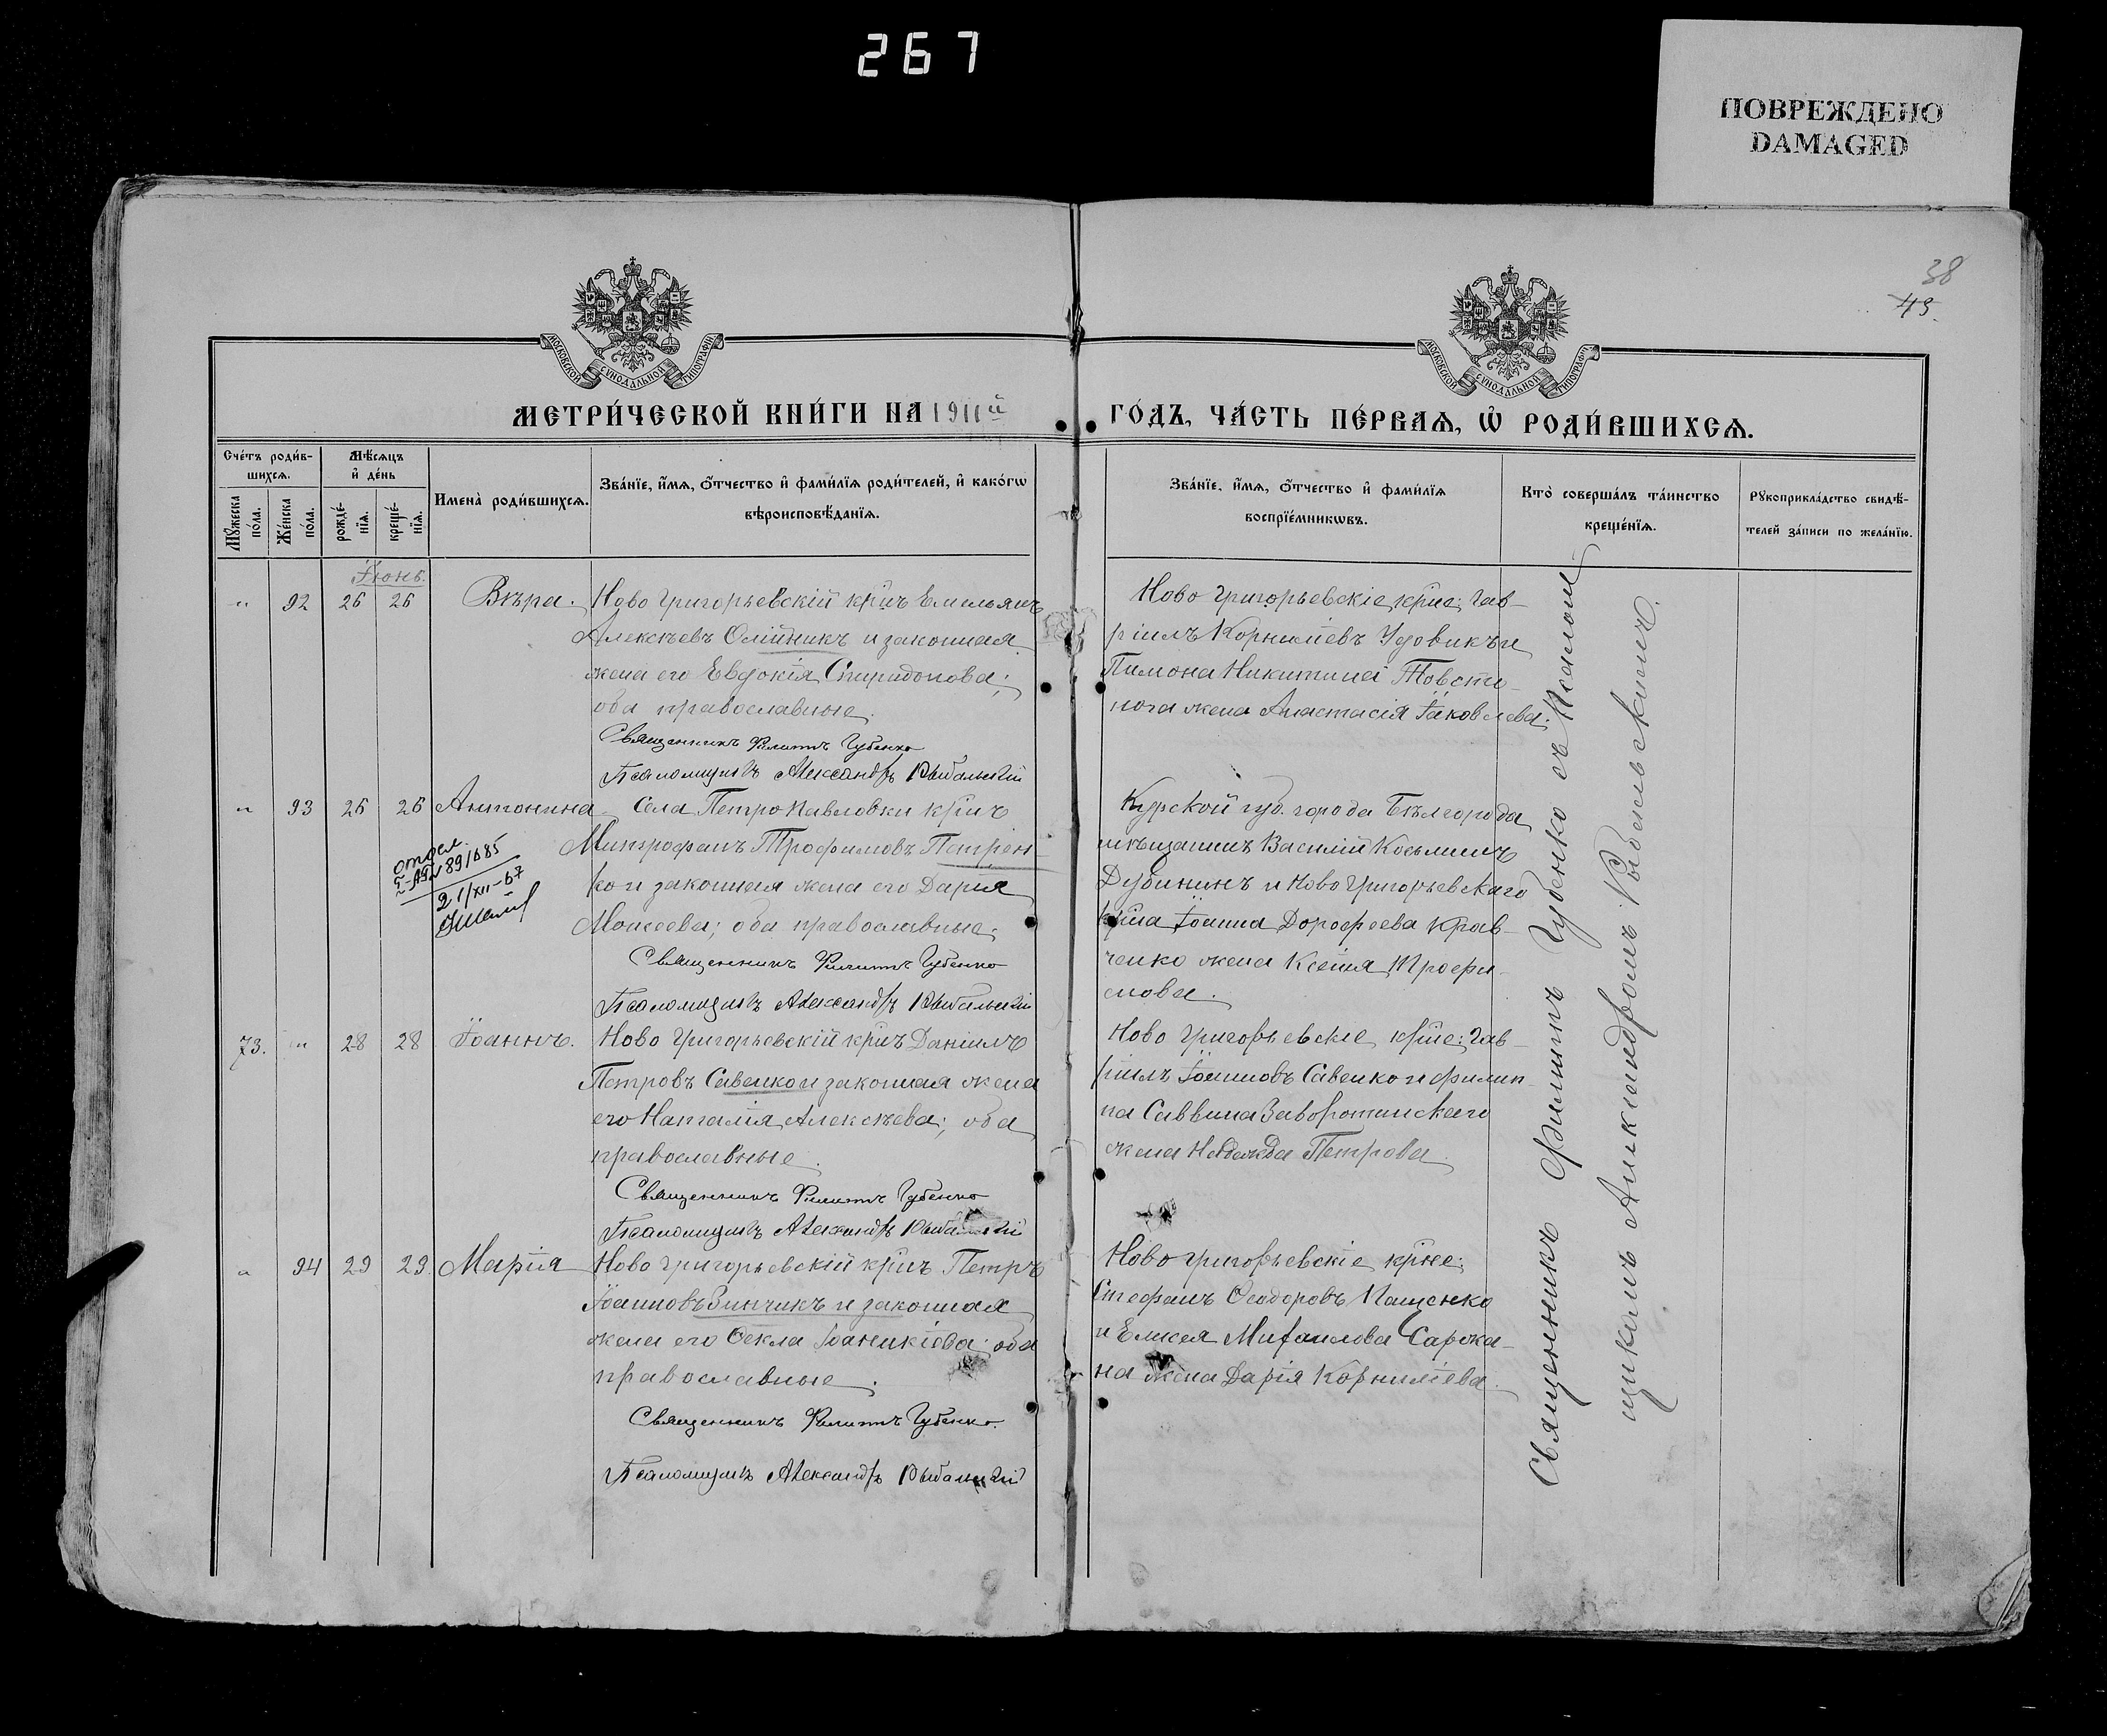 267
ПОВРЕЖДЕНО
DAMAGED
38
43.
МОСКОВСКОЙ СѴНОДАЛЬНОЙ ТИПОГРАФІИ
МОСКОВСКОЙ СѴНОДАЛЬНОЙ ТИПОГРАФІИ
МЕТРИ́ЧЕСКОЙ КНИ́ГИ НА 1911й
ГО́ДЪ, ЧА́СТЬ ПЕ́РВАѦ, Ѡ҆ РОДИ́ВШИХСѦ.
Сче́тъ роди́в-
шихсѧ.
Мѣ́сѧцъ
и҆ де́нь
Мꙋ́жеска
по́ла.
Же́нска
по́ла.
рожде́-
нїѧ.
креще́-
нїѧ.
Имена̀ роди́вшихсѧ.
Зва́нїе, и҆́мѧ, ѻ҆́тчество и҆ фами́лїѧ роди́телей, и҆ како́гѡ
вѣроисповѣ́данїѧ.
Зва́нїе, и҆́мѧ, ѻ҆́тчество и҆ фами́лїѧ
воспрїе́мникѡвъ.
Кто̀ соверша́лъ та́инство
креще́нїѧ.
Рꙋкоприкла́дство свидѣ́-
телей за́писи по жела́нїю.
Іюнь.
" 92 26 26 Вѣра. Ново Григорьевскій кр҃нъ Емельянъ
Алексѣевъ Олійникъ и законная
жена его Евдокія Спиридонова;
оба православные.
Священникъ Филиппъ Губенко
Псаломщикъ Александръ Рыбальскій
Ново Григорьевскіе кр҃не: Гав-
ріилъ Корниліевъ Удовикъ и
Пимона Никитина Товсто-
нога жена Анастасія Іаковлева.
" 93 26 26 Антонина Села Петропавловки кр҃нъ
Митрофанъ Трофимовъ Петрен-
ко и законная жена его Дарія
Моисеева; оба православные.
Священникъ Филиппъ Губенко
Псаломщикъ Александръ Рыбальскій
891685
21/XII-67
Курской губ. города Бѣлгорода
мѣщанинъ Василій Козьминъ
Дубининъ и Ново Григорьевскаго
кр҃на Іоанна Дорофеева Крав-
ченко жена Ксенія Трофи-
мова.
73. " 28 28 Іоаннъ. Ново Григорьевскій кр҃нъ Даніилъ
Петровъ Савенко и законная жена
его Наталія Алексѣева; оба
православные.
Священникъ Филиппъ Губенко
Псаломщикъ Александръ Рыбальскій
Ново Григорьевскіе кр҃не: Гав-
ріилъ Іоанновъ Савенко и Филип-
па Саввина Заворотинскаго
жена Надежда Петрова.
" 94 29 29. Марія Ново Григорьевскій кр҃нъ Петръ
Іоанновъ Зинчикъ и законная
жена его Ѳекла Іоаникіева; оба
православные.
Священникъ Филиппъ Губенко.
Псаломщикъ Александръ Рыбальскій
Ново Григорьевскіе кр҃не:
Стефанъ Ѳеодоровъ Пащенко
и Елисея Михаилова Сарока-
на жена Дарія Корниліева.
Священникъ Филиппъ Губенко съ Псалом-
щикомъ Александромъ Рыбальскимъ.